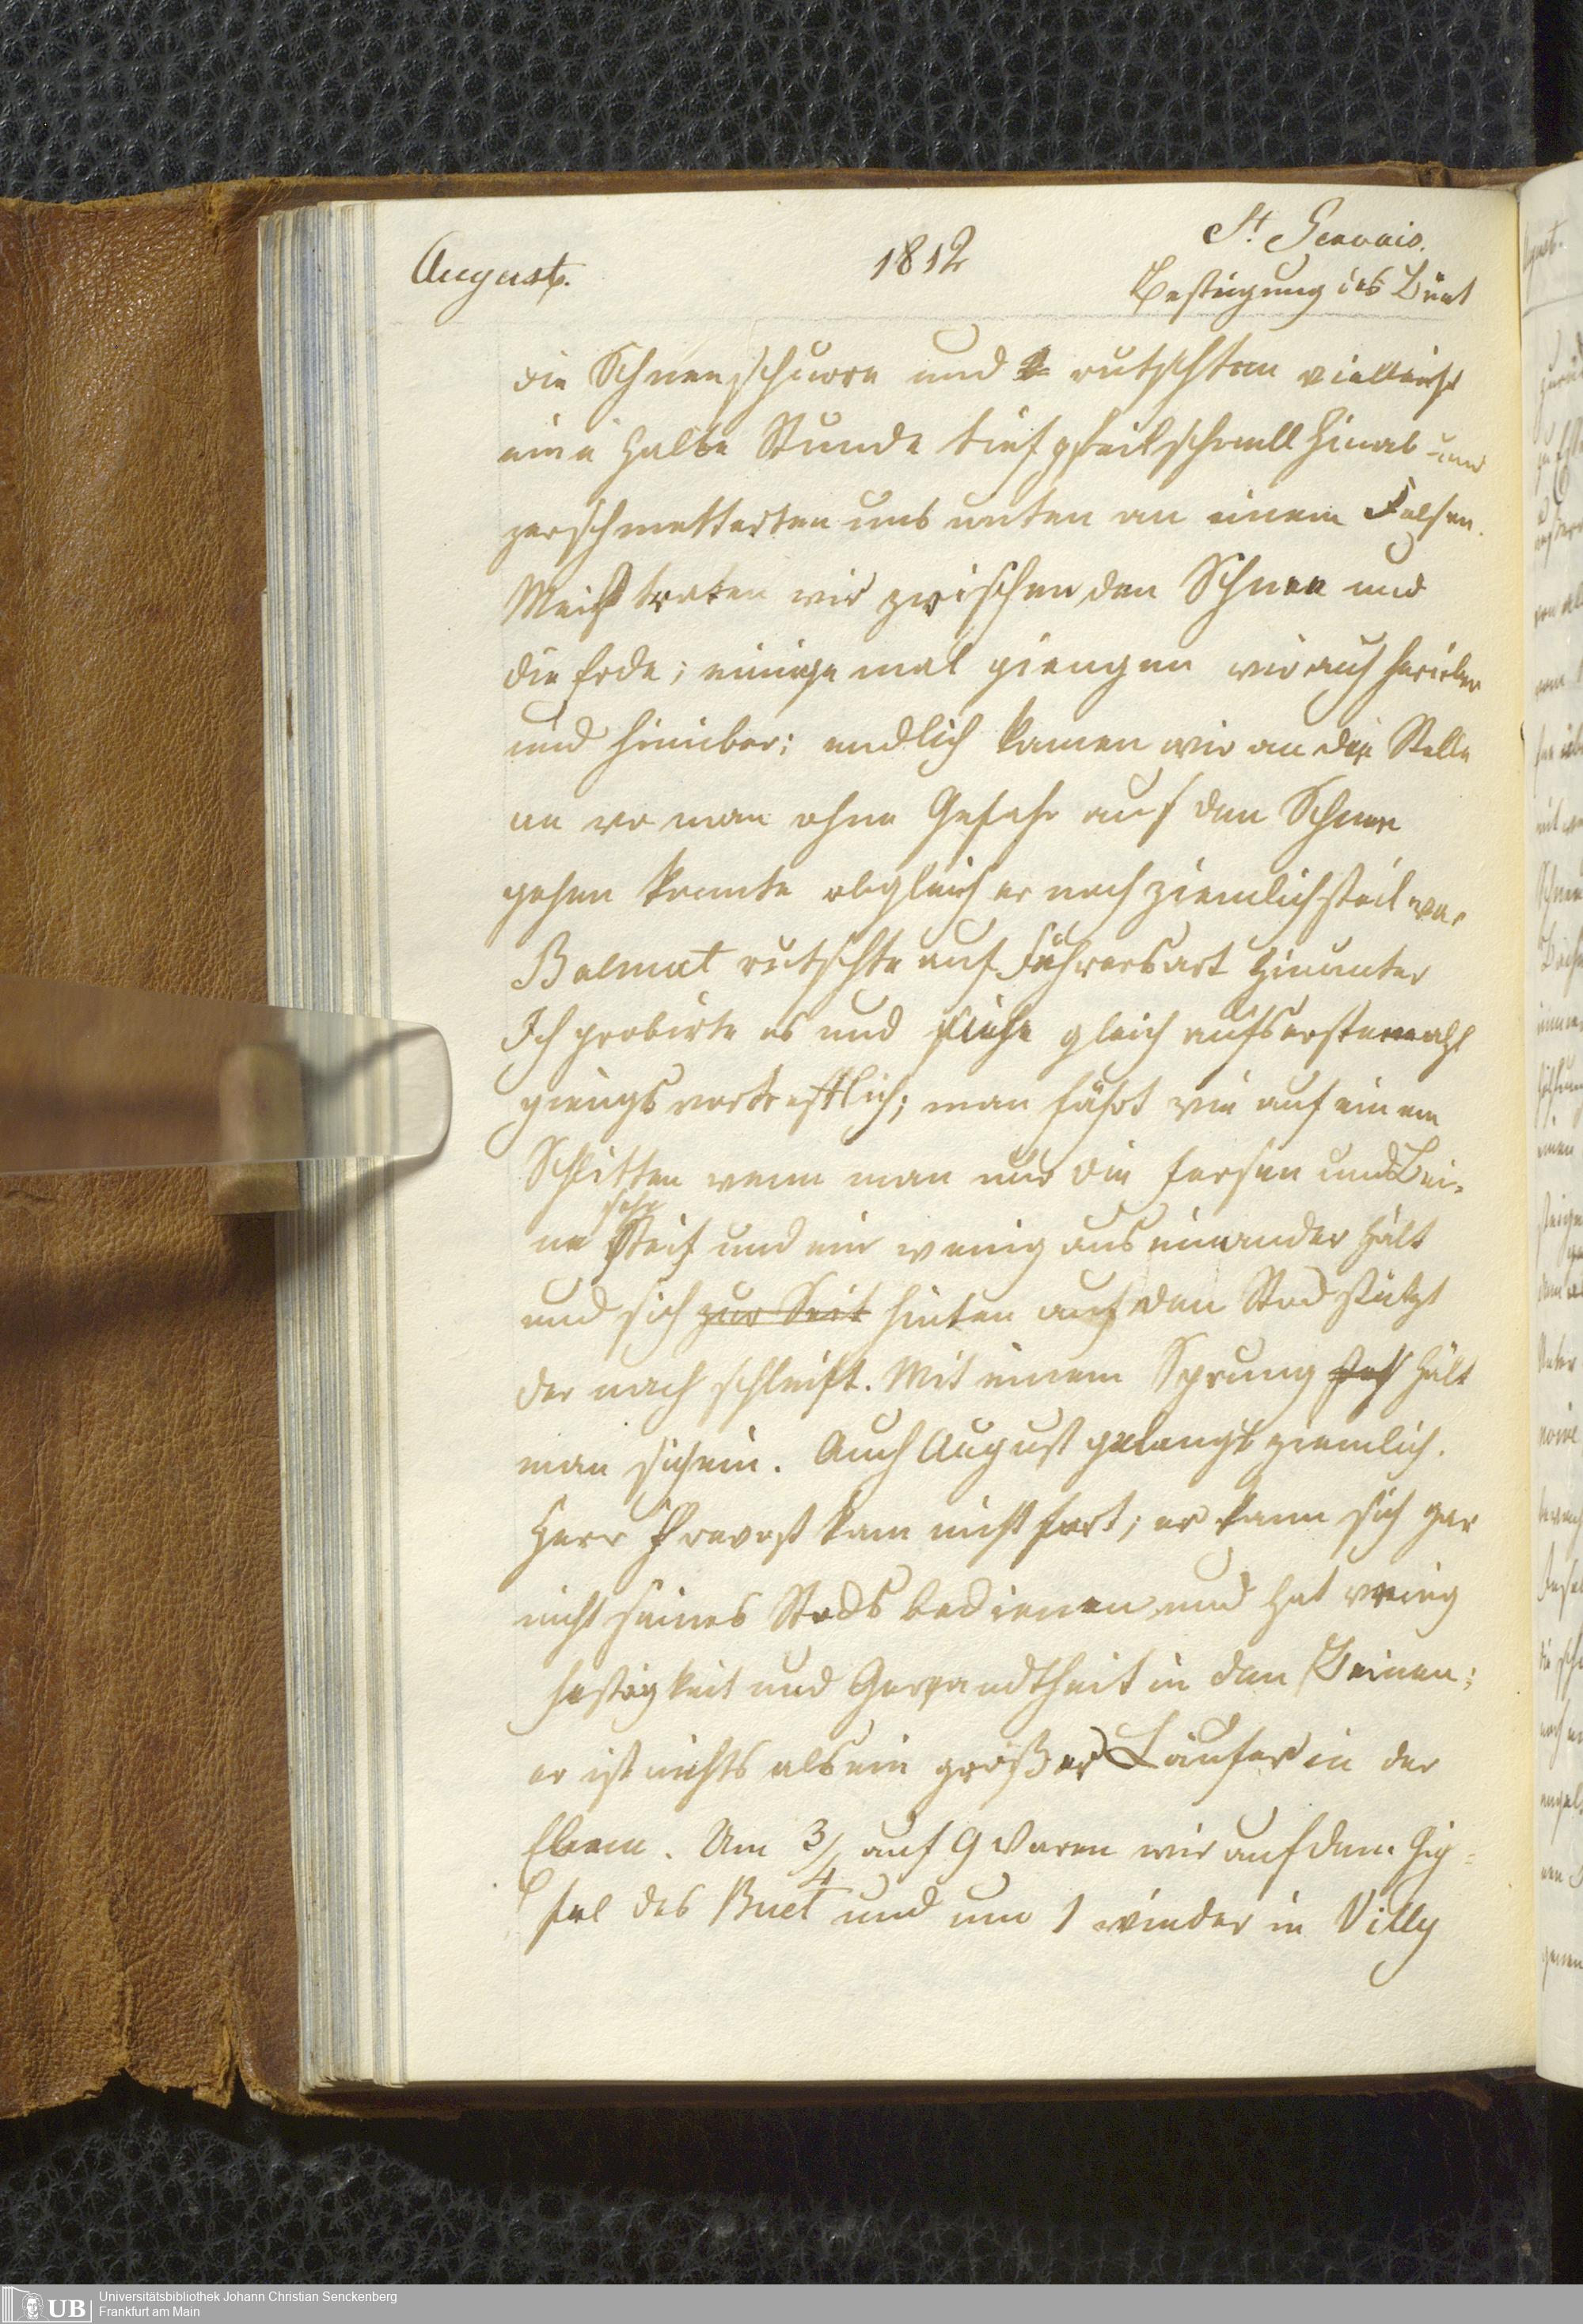 August.
1812
St. Gervais.
Besteigung des Buet
die Schneeschurre und rutschten vielleicht
eine halbe Stunde tief pfeilschnell hinab und
zerschmetterten uns unten an einem Felsen.
Meist traten wir zwischen den Schnee und
die Erde; einige mal giengen wir auch herüber
und hinüber; endlich kamen wir an die Stelle
an wo man ohne Gefahr auf den Schnee
gehen konnte obgleich er noch ziemlich steil war
Balmat rutschte auf Führersart hinunter
Ich probirte es und siehe gleich aufs erstemahl
giengs vortrefflich; man fährt wie auf einem
Schlitten wenn man nur die Fersen und Bei-
ne sehr steif und ein wenig auseinander hält
und sich zur Seit hinten auf den Stock stützt
der nach schleift. Mit einem Sprung hält
man sich ein. Auch August gelangs ziemlich.
Herr Prevost kam nicht fort; er kann sich gar
nicht seines Stocks bedienen und hat wenig
Festigkeit und Gewandtheit in den Beinen;
er ist nichts als ein großer Läufer in der
Ebene. Um 3/4 auf 9 waren wir auf dem Gip=
fel des Buet und um 1 wieder in Villy
UB
Universitätsbibliothek Johann Christian Senckenberg
Frankfurt am Main